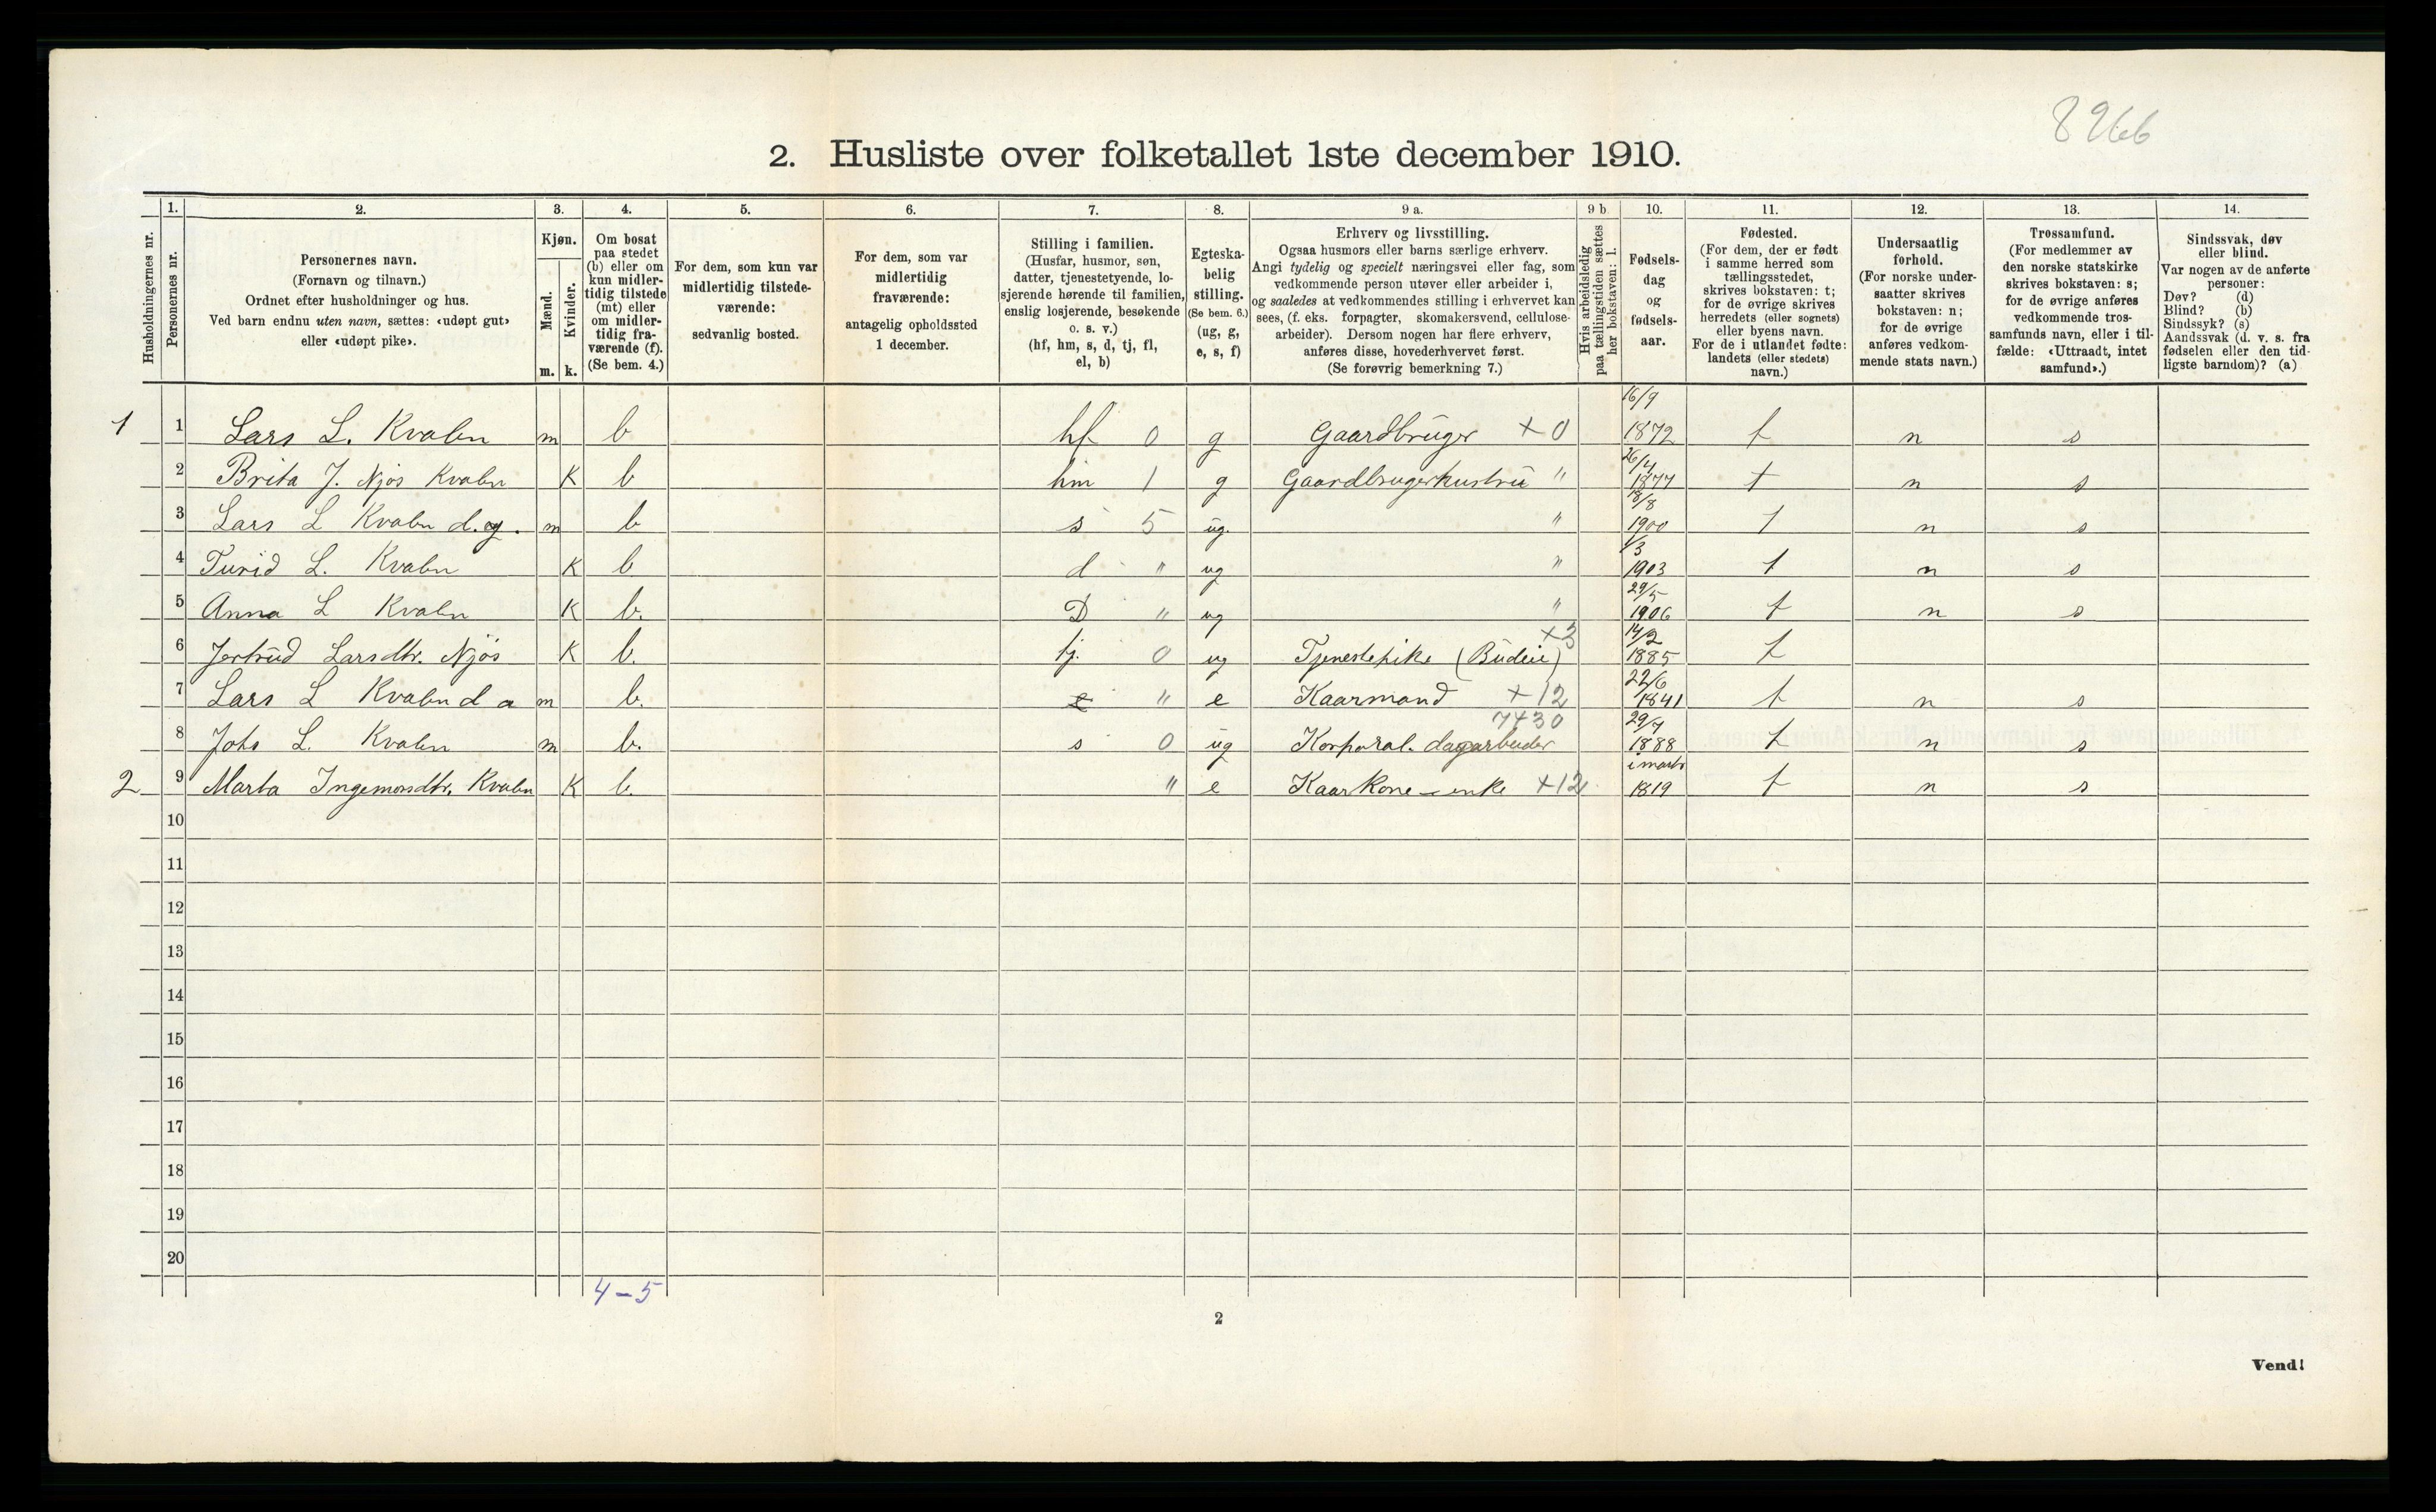 8966
2. Husliste over folketallet 1ste december 1910.
1. 2. 3. 4. 5. 6. 7. 8. 9 a. 9 b 10. 11. 12. 13. 14.
Husholdningernes nr.
Personernes nr.
Personernes navn.
(Fornavn og tilnavn.)
Ordnet efter husholdninger og hus.
Ved barn endnu uten navn, sættes: «udøpt gut»
eller «udøpt pike».
Kjøn.
Mænd.
Kvinder.
m. k.
Om bosat
paa stedet
(b) eller om
kun midler-
tidig tilstede
(mt) eller
om midler-
tidig fra-
værende (f).
(Se bem. 4.)
For dem, som kun var
midlertidig tilstede-
værende:
sedvanlig bosted.
For dem, som var
midlertidig
fraværende:
antagelig opholdssted
1 december.
Stilling i familien.
(Husfar, husmor, søn,
datter, tjenestetyende, lo-
sjerende hørende til familien,
enslig losjerende, besøkende
o. s. v.)
(hf, hm, s, d, tj, fl,
el, b)
Egteska-
belig
stilling.
(Se bem. 6.)
(ug, g,
e, s, f)
Erhverv og livsstilling.
Ogsaa husmors eller barns særlige erhverv.
Angi tydelig og specielt næringsvei eller fag, som
vedkommende person utøver eller arbeider i,
og saaledes at vedkommendes stilling i erhvervet kan
sees, (f. eks. forpagter, skomakersvend, cellulose-
arbeider). Dersom nogen har flere erhverv,
anføres disse, hovederhvervet først.
(Se forøvrig bemerkning 7.)
Hvis arbeidsledig
paa tællingstiden sættes
her bokstaven: l.
Fødsels-
dag
og
fødsels-
aar.
Fødested.
(For dem, der er født
i samme herred som
tællingsstedet,
skrives bokstaven: t;
for de øvrige skrives
herredets (eller sognets)
eller byens navn.
For de i utlandet fødte:
landets (eller stedets)
navn.)
Undersaatlig
forhold.
(For norske under-
saatter skrives
bokstaven: n;
for de øvrige
anføres vedkom-
mende stats navn.)
Trossamfund.
(For medlemmer av
den norske statskirke
skrives bokstaven: s;
for de øvrige anføres
vedkommende tros-
samfunds navn, eller i til-
fælde: «Uttraadt, intet
samfund».)
Sindssvak, døv
eller blind.
Var nogen av de anførte
personer:
Døv? (d)
Blind? (b)
Sindssyk? (s)
Aandssvak (d. v. s. fra
fødselen eller den tid-
ligste barndom)? (a)
1 1 Lars L. Kvalen m b hf 0 g Gaardbruger +0 16/9 1872 t n s
2 Brita J. Njøs Kvalen K b hm 1 g Gaardbrugerhustru " 26/4 1877 t n s
3 Lars L Kvalen d.y. m b s 5 ug. " 18/8 1900 t n s
4 Turid L. Kvalen K b d " ug " 1/3 1903 t n s
5 Anna L Kvalen K b. D " ug " 29/5 1906 t n s
6 Jertrud Larsdtr. Njøs K b. tj. 0 ug Tjenestepike (Budeie) +3 14/2 1885 t
7 Lars L Kvalen d a m b. " e Kaarmand +12 22/6 1841 t n s
8 Johs L. Kvalen m b. s 0 ug Korporal. dagarbeider 7430 29/7 1888 t n s
2 9 Marta Ingemonsdtr. Kvalen K b. " e Kaarkone - enke +12 i marts 1819 t n s
10
11
12
13
14
15
16
17
18
19
20
4-5
2
Vend!